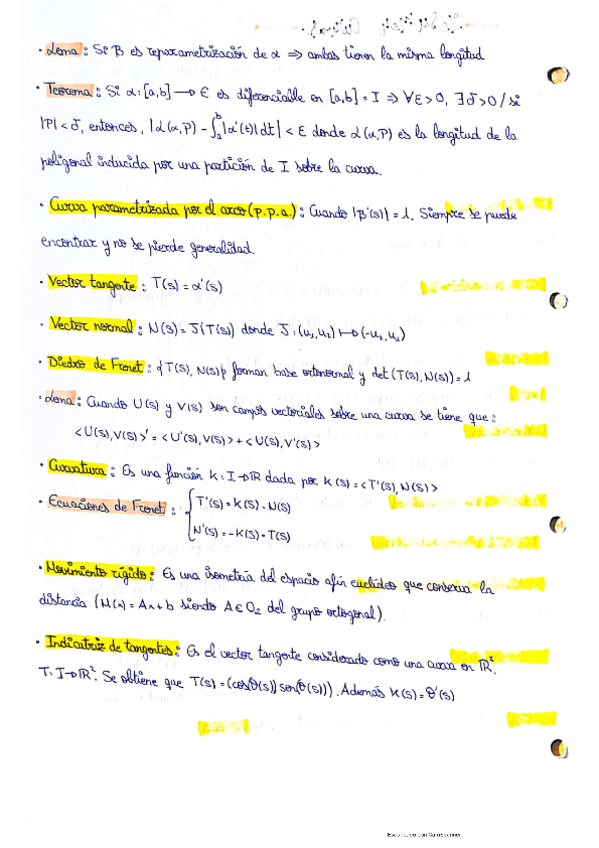 · Lema: Si β es reparametrización de α ⇒ ambas tienen la misma longitud
· Teorema: Si α: [a,b] → E es diferenciable en [a,b] = I ⇒ ∀ε>0, ∃δ>0 / si
|P| < δ, entonces, |L(α,P) - ∫ₐᵇ|α'(t)|dt| < ε donde L(α,P) es la longitud de la
poligonal inducida por una partición de I sobre la curva.
· Curva parametrizada por el arco (p.p.a.): Cuando |β'(s)| = 1. Siempre se puede
encontrar y no se pierde generalidad.
· Vector tangente: T(s) = α'(s)
· Vector normal: N(s) = J(T(s)) donde J: (u₁, u₂) ↦ (-u₂, u₁)
· Diedro de Frenet: {T(s), N(s)} forman base ortonormal y det(T(s), N(s)) = 1
· Lema: Cuando U(s) y V(s) son campos vectoriales sobre una curva se tiene que:
<U(s), V(s)>' = <U'(s), V(s)> + <U(s), V'(s)>
· Curvatura: Es una función K: I → ℝ dada por K(s) = <T'(s), N(s)>
· Ecuaciones de Frenet: { T'(s) = K(s) · N(s)
N'(s) = -K(s) · T(s)
· Movimiento rígido: Es una isometría del espacio afín euclídeo que conserva la
distancia (M(x) = Ax + b siendo A ∈ O₂ del grupo ortogonal).
· Indicatriz de tangentes: Es el vector tangente considerado como una curva en ℝ².
T: I → ℝ². Se obtiene que T(s) = (cos(θ(s)) sen(θ(s))). Además K(s) = θ'(s)
Escaneado con CamScanner